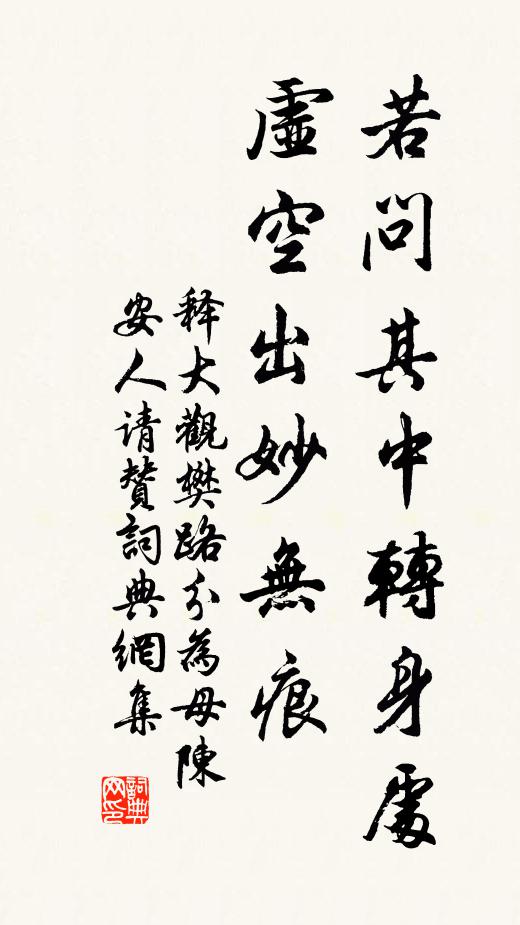 若問其中轉身處
虛空出妙無痕
釋大觀樊路分為母陳
安人请贊詞典網集
詞典网印